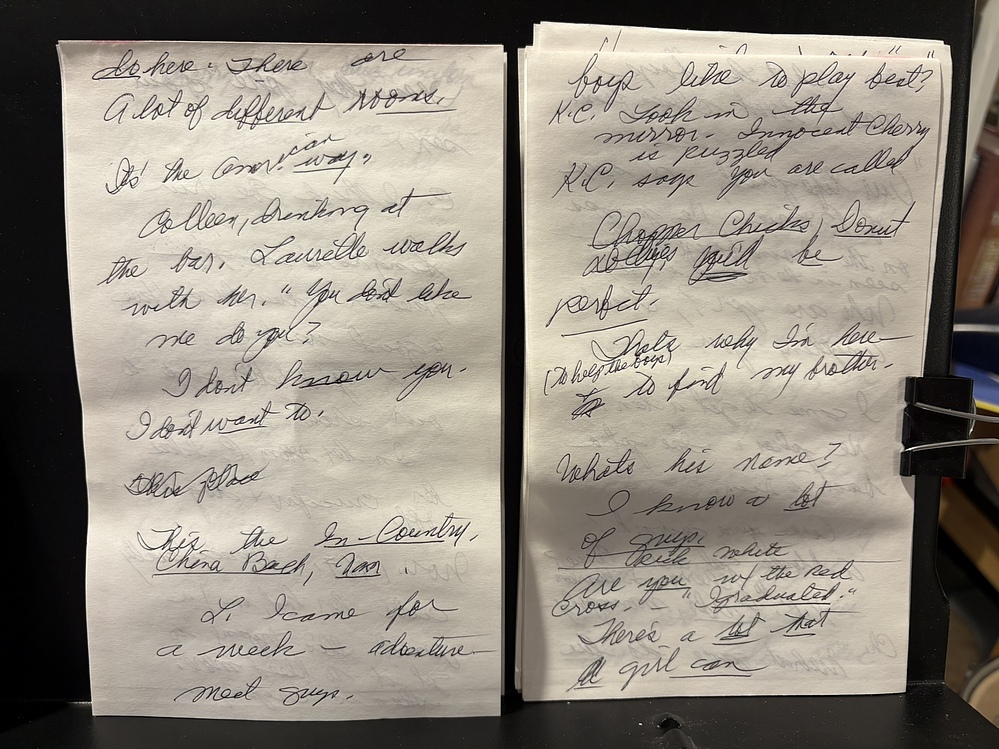 do here. There are
A lot of different rooms.
It's the american way.
Colleen, drinking at
the bar. Laurette walks
with her. "You don't like
me do you?
I don't know you.
I don't want to.
This place
This the In-Country.
China Beach, Nam.
L. I came for
a week – adventure –
meet guys.
boys like to play best?
K.C. Look in the
mirror. Innocent Cherry
is puzzled
K.C. says You are called"
Chopper Chicks, Donut
Dollies be
perfect.
Thats why I'm here –
(To help the boys)
to find my brother.
Whats his name?
I know a lot
of guys.
white
Are you w/ the Red
Cross. – "I graduated."
There's a lot that
A girl can